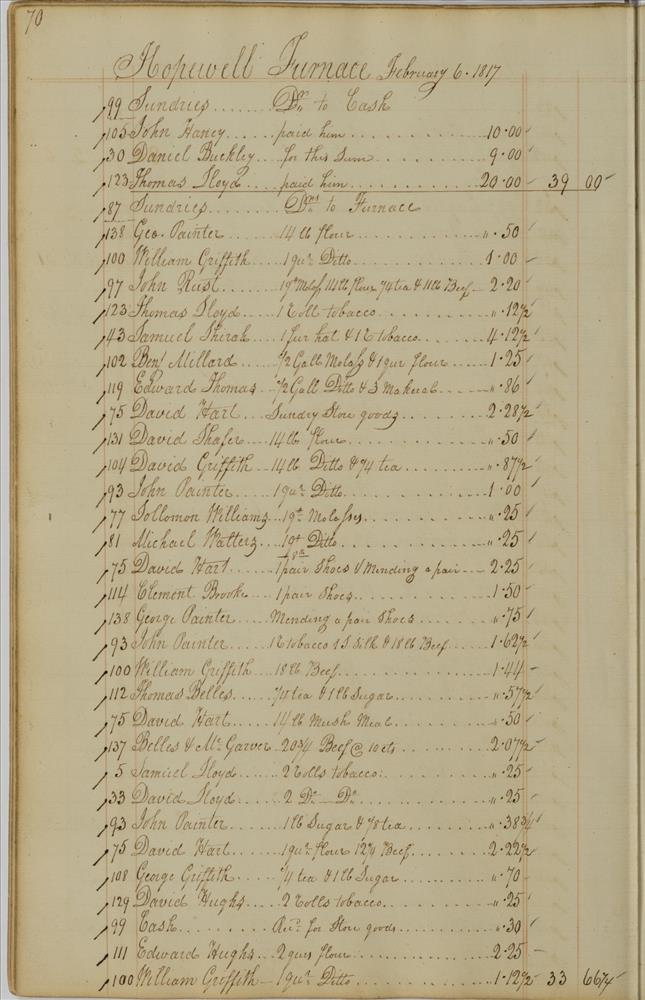 70
Hopewell Furnace February 6. 1817
99 Sundries Drs to Cash
105 John Haney paid him 10.00
30 Daniel Buckley for this Sum 9.00
123 Thomas Lloyd paid him 20.00 39 00
87 Sundries Drs to Furnace
138 Geo. Painter 14 lb flour " .50
100 William Griffith 1 qur Ditto 1.00
97 John Rust 1 qt Molass 14 lb flour 1/4 tea & 11 lb Beef 2.20
123 Thomas Lloyd 1 Roll tobacco " .12 1/2
43 Samuel Shirak 1 fur hat & 1 R tobacco 4.12 1/2
102 Benj Millard 1/2 Gall Molass & 1 qur flour 1.25
119 Edward Thomas 1/2 Gall Ditto & 3 Makeral " .86
75 David Hart Sundry Store goods 2.28 1/2
131 David Shafer 14 lb flour " .50
104 David Griffith 14 lb Ditto & 1/4 tea " .87 1/2
93 John Painter 1 qur Ditto 1.00
77 Sollomon Williams 1 qt Molasses " .25
81 Michael Watters 1 qt Ditto " .25
75 David Hart 1 pair Shoes & Mending a pair 2.25
114 Clement Brooke 1 pair Shoes 1.50
138 George Painter Mending a pair Shoes " .75
93 John Painter 1 R tobacco 1 S Silk & 18 lb Beef 1.62 1/2
100 William Griffith 18 lb Beef 1.44
112 Thomas Belles 1/8 tea & 1 lb Sugar " .57 1/2
75 David Hart 14 lb Mush Meal " .50
137 Belles & Mc Garver 20 3/4 Beef @ 10 cts 2.07 1/2
5 Samuel Lloyd 2 Rolls tobacco " .25
33 David Lloyd 2 Do Do " .25
93 John Painter 1 lb Sugar & 1/8 tea " .38 3/4
75 David Hart 1 qur flour 12 1/4 Beef 2.22 1/2
108 George Griffith 1/4 tea & 1 lb Sugar " .70
129 David Hughs 2 Rolls tobacco " .25
99 Cash Recd for Store goods " .30
111 Edward Hughs 2 qurs flour 2.25
100 William Griffith 1 qur Ditto 1.12 1/2 33 66 3/4